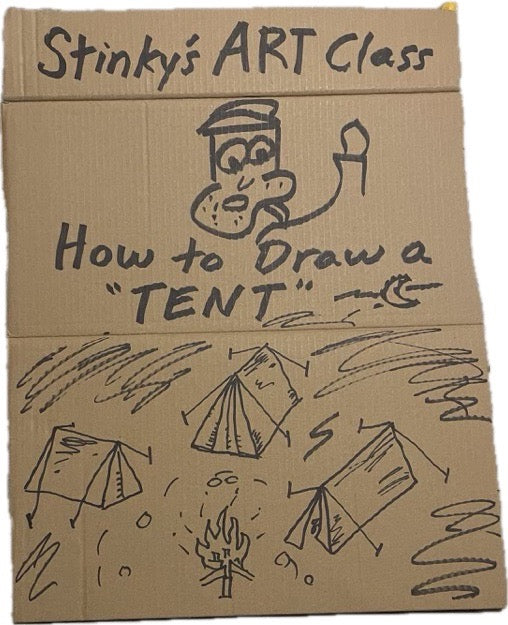 Stinky's ART Class
How to Draw a
"TENT"